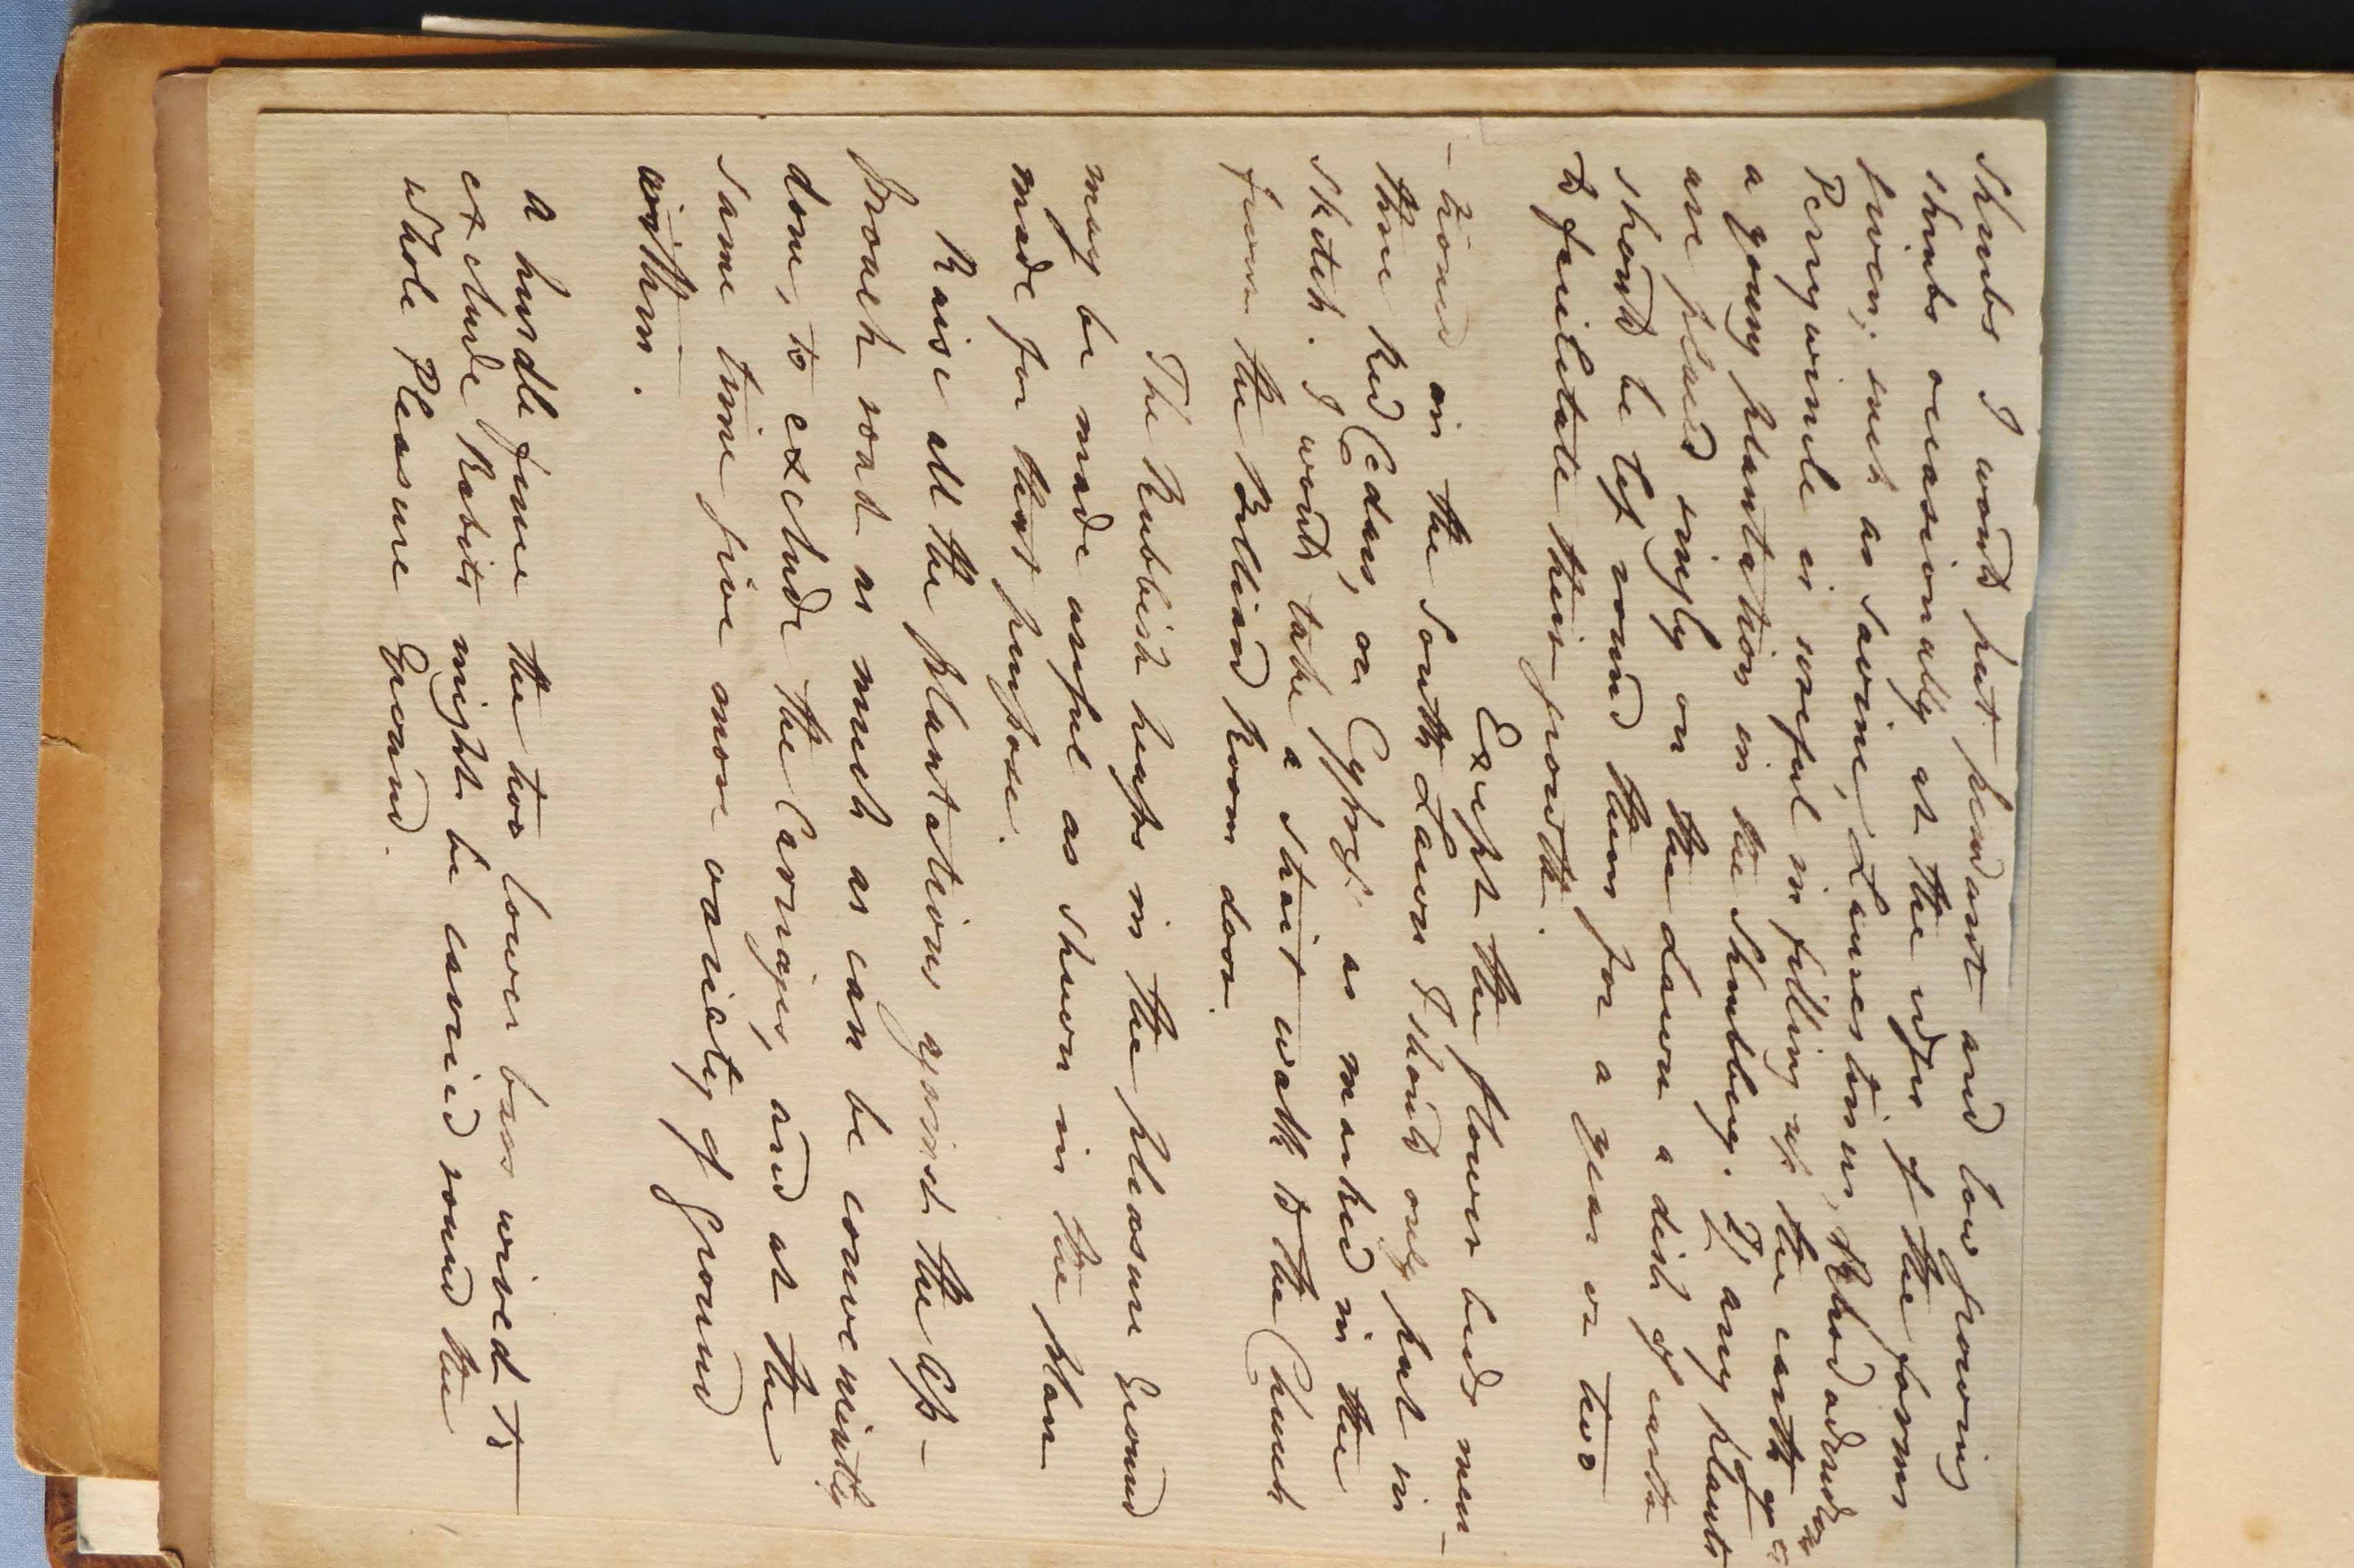 Shrubs I would put pendant and low growing
shrubs occasionally at the edges of the forms
given; such as savine, Laurestines, Rhododendron
Perrywincle is usefull in filling up the earth of
a young plantation in the Shrubbery. If any plants
are placed singly on the Lawn a dish of earth
should be left round them for a year or two
to facilitate their growth.
Except the flower beds men-
-tioned on the South Lawn I should only put in
three Red Cedars, or Cyprus as marked in the
sketch. I would take a strait walk to the Church
from the Billiard Room door.
The Rubbish heaps in the pleasure Ground
may be made useful as shewn in the plan
made for that purpose.
Raise all the plantations against the Ap-
proach road as much as can be conveniently
done, to exclude the Carriages, and at the
same time give more variety of ground
within.
a hurdle fence the two lower bars wired to
exclude Rabits might be carried round the
whole Pleasure Ground.